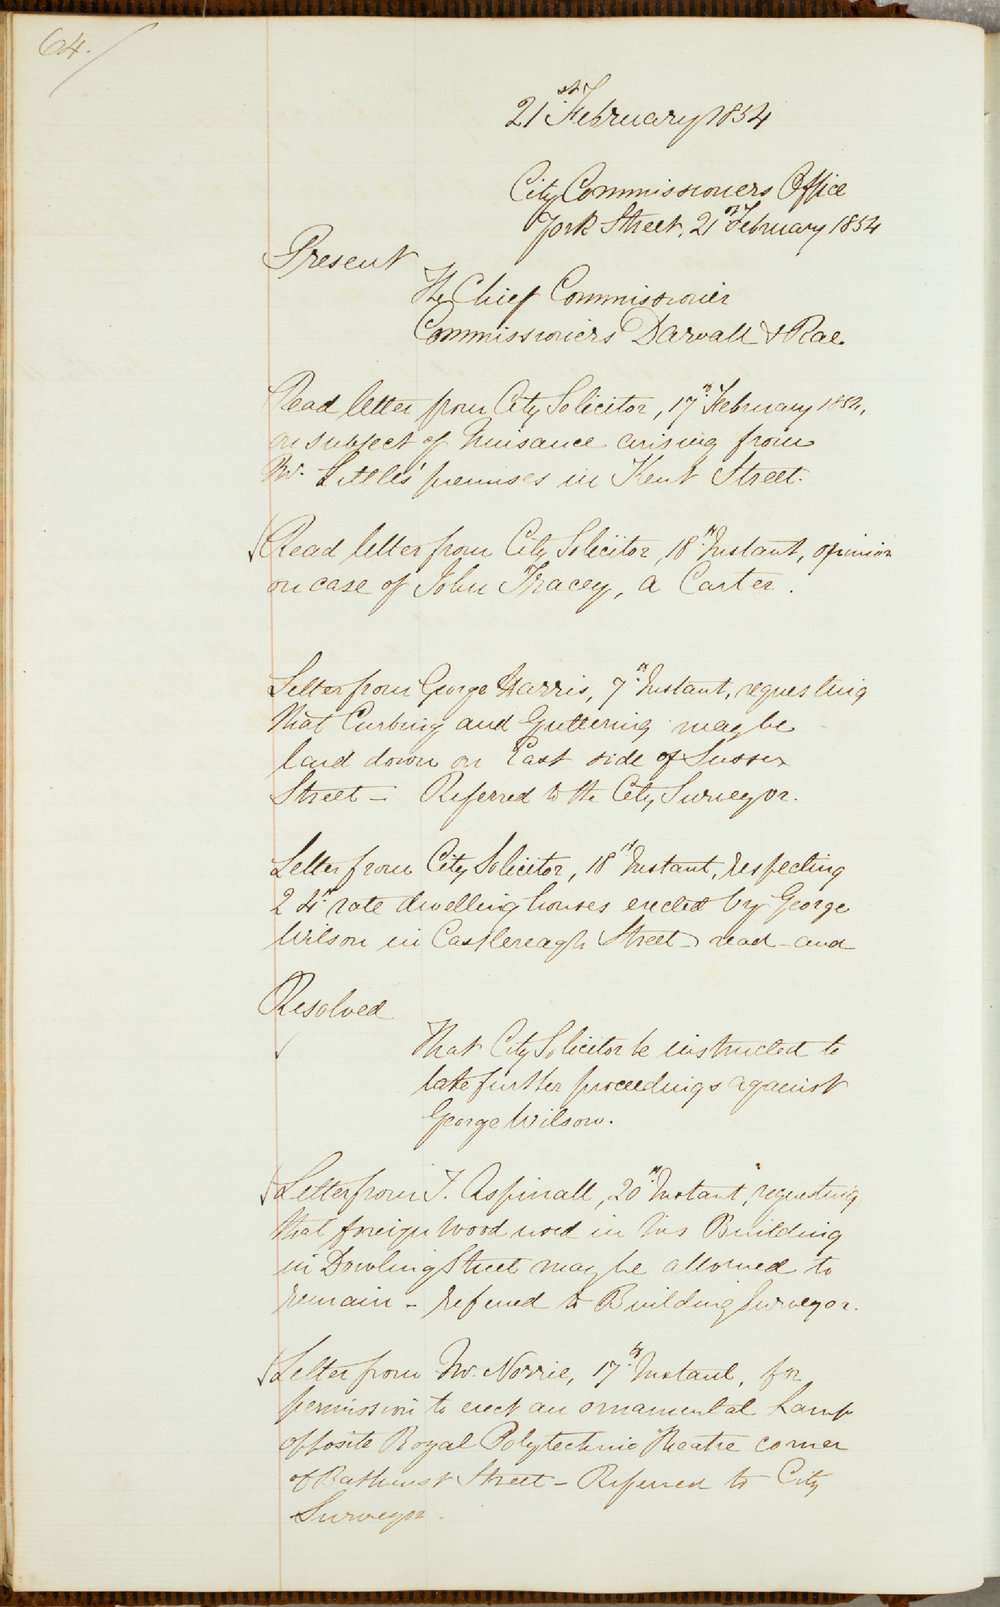 64.
21st February 1854
City Commissioners Office
York Street, 21st February 1854
Present
The Chief Commissioner
Commissioners Darvall & Rae.
Read letter from City Solicitor, 17th February 1854,
on subject of Nuisance arising from
Mr. Little's premises in Kent Street.
Read letter from City Solicitor, 18th Instant, opinion
on case of John Tracey, a Carter.
Letter from George Harris, 7th Instant, requesting
that Curbing and Guttering may be
laid down on East side of Sussex
Street - Referred to the City Surveyor.
Letter from City Solicitor, 18th Instant, respecting
2 4th rate dwelling houses erected by George
Wilson in Castlereagh Street - read - and
Resolved
That City Solicitor be instructed to
take further proceedings against
George Wilson.
Letter from T. Aspinall, 20th Instant, requesting
that foreign wood used in his Building
in Dowling Street may be allowed to
remain - referred to Building Surveyor.
Letter from Mr. Norrie, 17th Instant, for
permission to erect an ornamental Lamp
opposite Royal Polytechnic Theatre corner
of Bathurst Street - Referred to City
Surveyor.